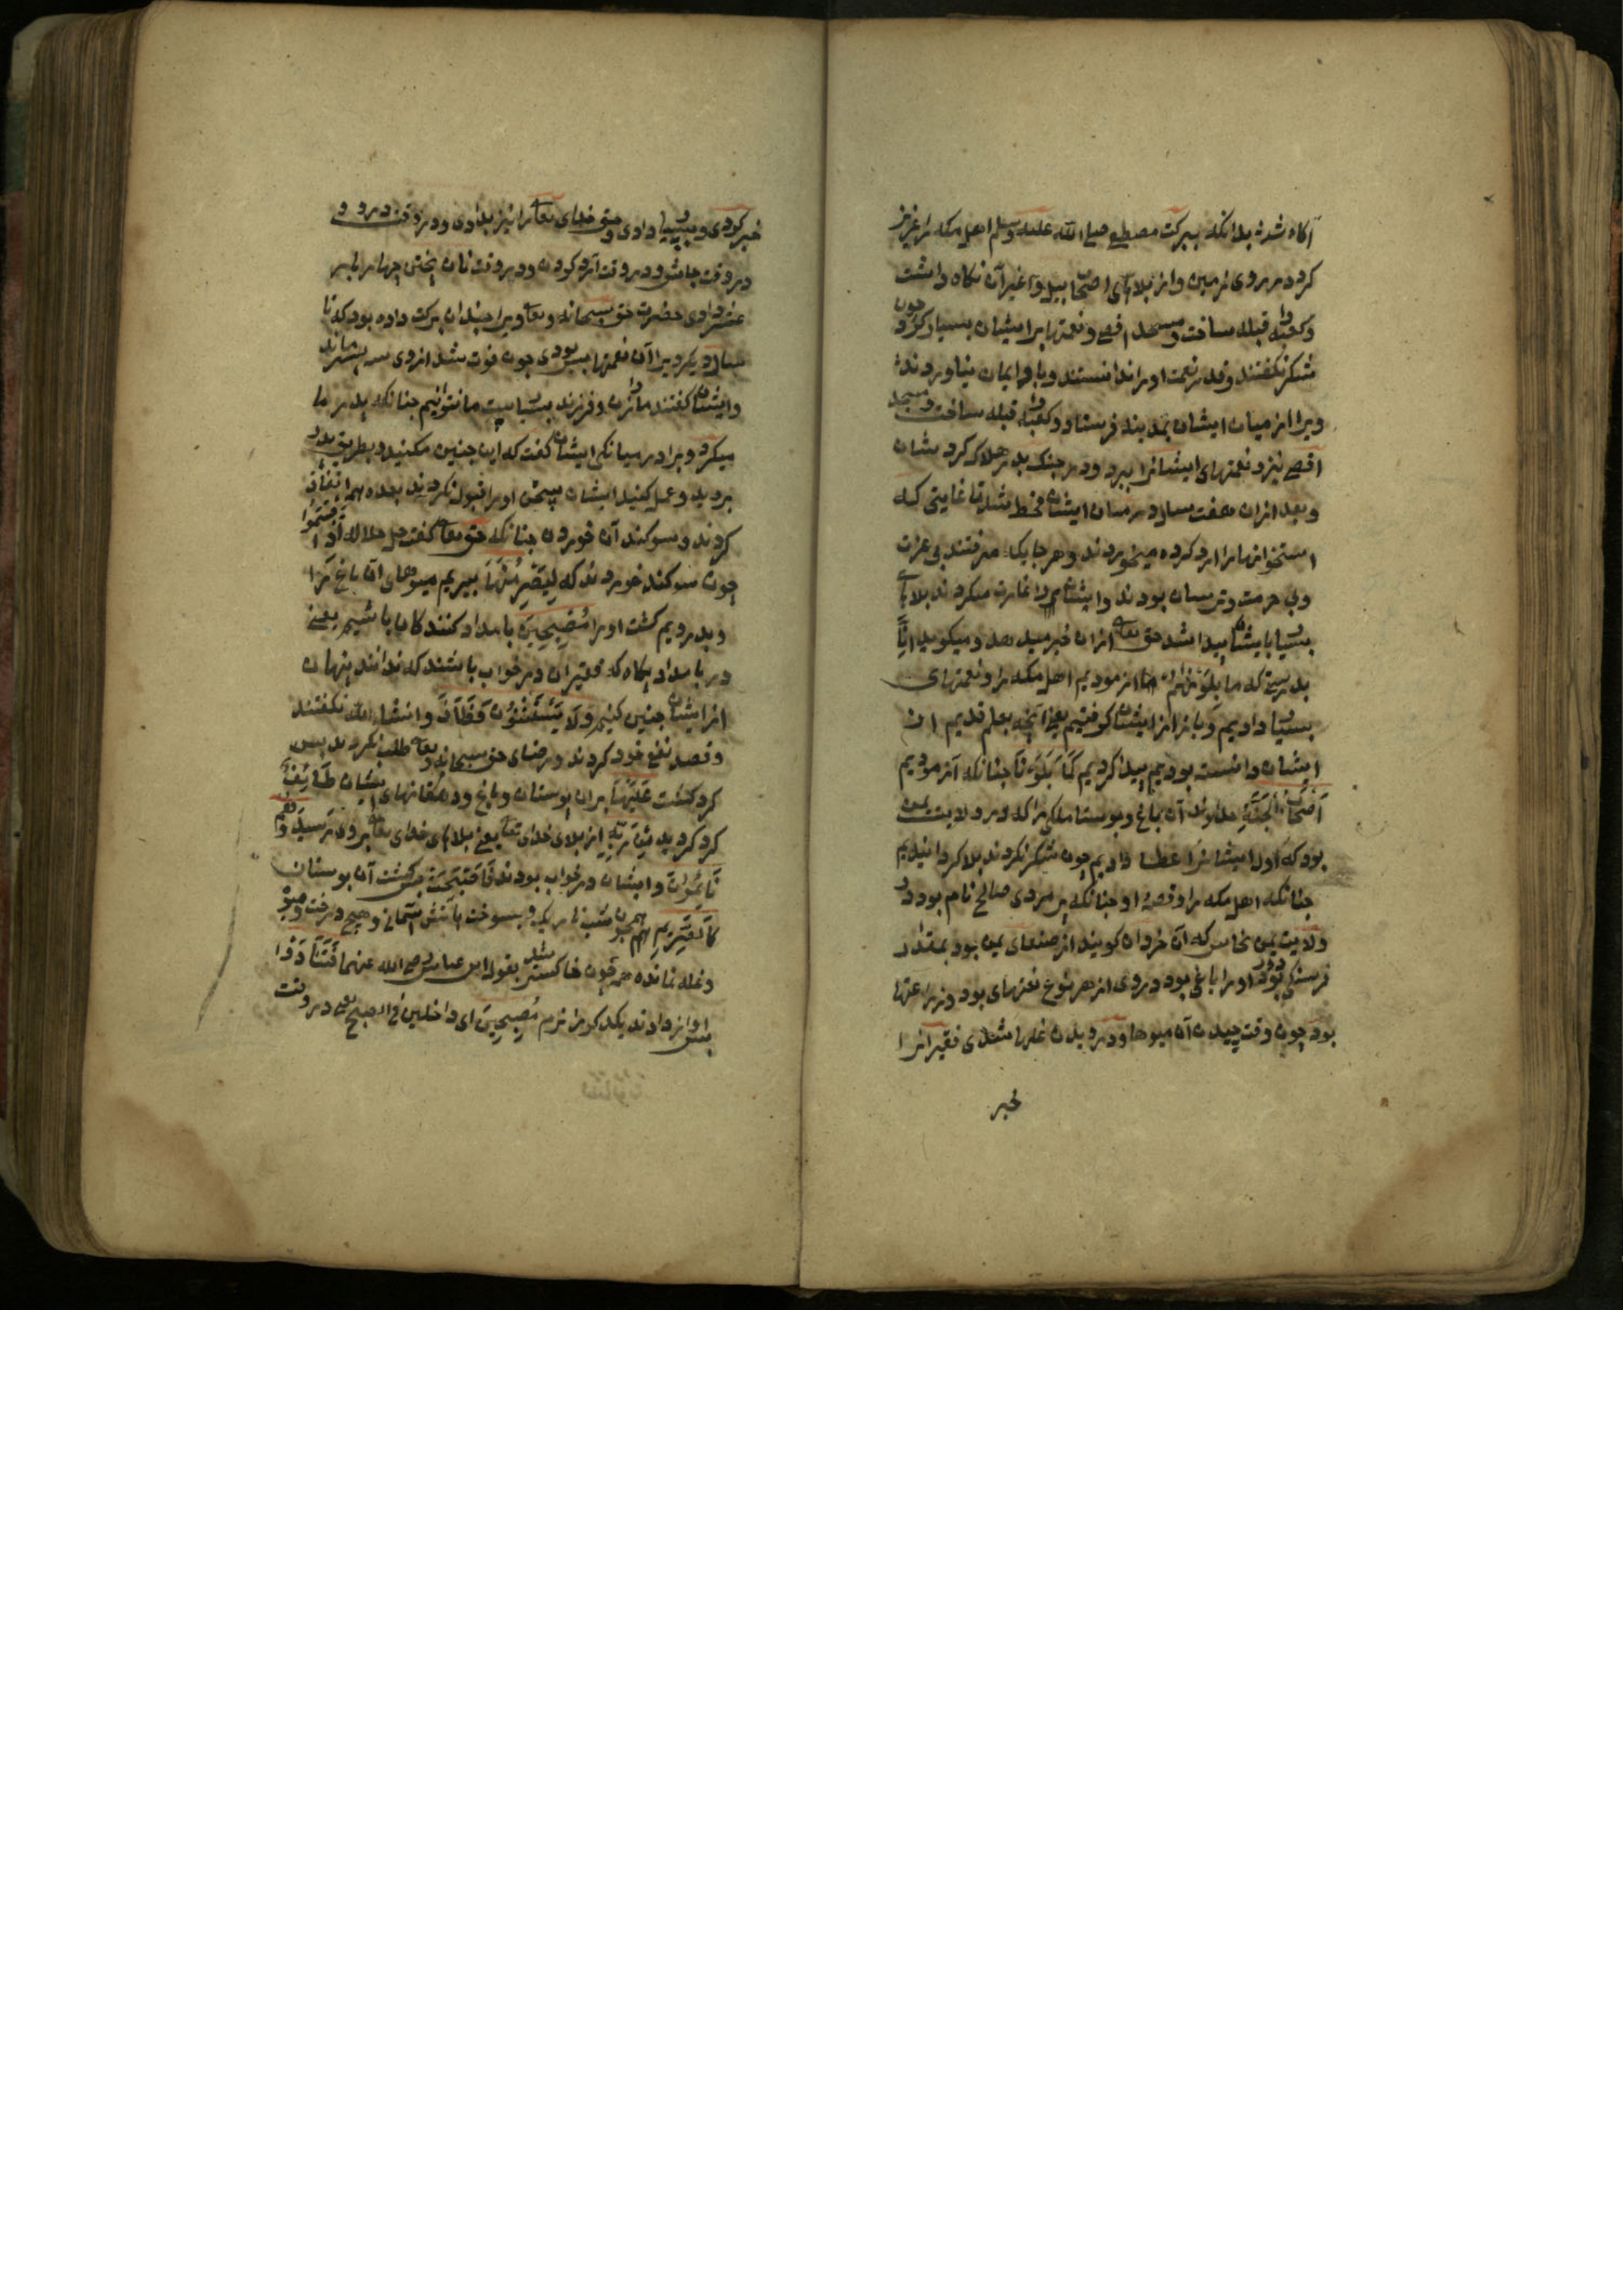 آکاه شده بدانکه ببرکت مصطفی صلی الله علیه وسلم اهل مکه را عزیز
کرد در روی زمین و از بلاهای اصحاب پیل و غیر آن نکاه داشت
و کعبه را قبله ساخت و مسجد اقصی و نعمتها بر ایشان بسیار کرد چون
شکر نکفتند و قدر نعمت او را ندانستند و با او ایمان نیاوردند
ویرا از میان ایشان بمدینه فرستاد و کعبه را قبله ساخت و مسجد
اقصی نیز و نعمتهای ایشانرا ببرد و در جنک بدر هلاک کرد بشان
و بعد از آن هفت سال در میان ایشان قحط شد تا غایتی که
استخوانها را آرد کرده میخوردند و هر جا یکه میرفتند بی عزت
و بی حرمت و ترسان بودند و ایشانرا غارت میکردند بلاها
بسیار بایشان پیدا شد حق تعالی از آن خبر میدهد و میکوید انا
بدرستی که ما بلوناهم ما آزمودیم اهل مکه را و نعمتهای
بسیار دادیم و باز از ایشان کرفتیم یعنی آنچه بعلم قدیم از
ایشان دانسته بودیم پیدا کردیم کما بلونا چنانکه آزمودیم
اصحاب الجنة خداوند آن باغ و بوستان ملکی را که در ولایت یمن
بود که اول ایشانرا عطا دادیم چون شکر نکردند بلا کردانیدیم
چنانکه اهل مکه را و قصه او چنانکه پیر مردی صالح نام بود در
ولایت یمن که آن خردان کویند از صنعای یمن بود بمقدار
فرسنکی بود او را باغی بود در وی از هر نوع نعتهای بود و زراعتها
بود چون وقت چیدن آن میوها و درویدن غلها شدی فقیرانرا
خبر
خبر کردی و بسیار دادی و حق خدای تعالی را نیز بدادی و در وقت درو و
در وقت چاش و در وقت آرد کردن و در وقت نان پختن چهار بار
عشر دادی حضرت حق سبحانه و تعالی ویرا چندان برکت داده بود که تا
سال دیکر ویرا آن نعمتها بس بودی چون فوت شد از وی سه پسر ماند
و ایشان کفتند ما را زن و فرزند بسیار ست ما نتوانیم چنانکه پدر ما
میکرد و برادر میانکی ایشان کفت که این چنین مکنید و بطریق پدر
بروید و عمل کنید ایشان سخن او را قبول نکردند بعده همه اتفاق
کردند و سوکند آن خوردن چنانکه حق تعالی کفت جل جلاله اذ اقسموا
چون سوکند خوردند که لیصرمنها ببریم میوهای آن باغ را
و بدرویم کشت او را مصبحین بامداد کنند کان باشیم یعنی
در بامداد پکاه که فقیران در خواب باشند که ندانند پنهان
از ایشان چنین کنیم ولا یستثنون فطاف و انشاء الله نکفتند
و قصد نفع خود کردند و رضای حق سبحانه و تعالی طلب نکردند پس
کرد کشت علیها بران بوستان و باغ و دهقانهای ایشان طائفة
کرد کردید من ربک از بلای خدای تعالی یعنی بلاهای خدای تعالی بروی رسید و هم
نائمون و ایشان در خواب بودند فاصبحت پس کشت آن بوستان
کالصریم همچون شب تاریک و بسوخت باتش آسمانی و هیچ درخت و میوه
و غله نمانده همه چون خاکستر شد بقول ابن عباس رضی الله عنهما فتنادوا
پس آواز دادند یکدیکر را نرم مصبحین ای داخلین فی الصبح یعنی در وقت